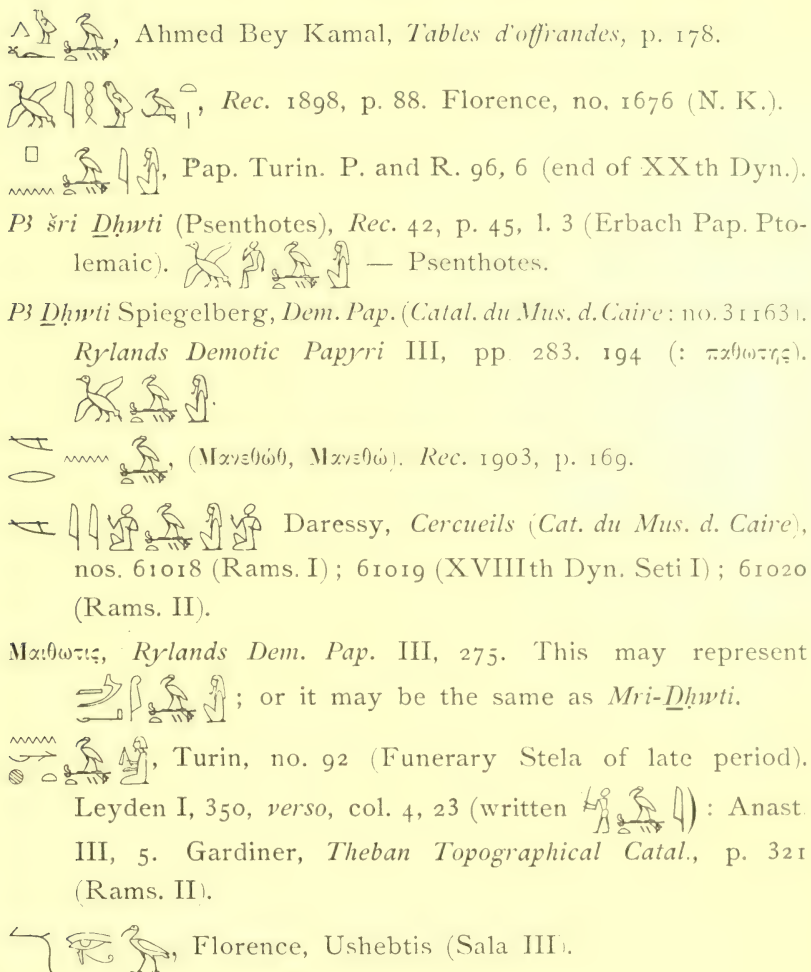 , Ahmed Bey Kamal, Tables d'offrandes, p. 178.
, Rec. 1898, p. 88. Florence, no. 1676 (N. K.).
, Pap. Turin. P. and R. 96, 6 (end of XXth Dyn.).
Pꜣ šri Ḏḥwti (Psenthotes), Rec. 42, p. 45, l. 3 (Erbach Pap. Pto-
lemaic). — Psenthotes.
Pꜣ Ḏḥwti Spiegelberg, Dem. Pap. (Catal. du Mus. d. Caire: no. 31163).
Rylands Demotic Papyri III, pp. 283. 194 (: παθωτης).
, (Μανεθώθ, Μανεθώ). Rec. 1903, p. 169.
Daressy, Cercueils (Cat. du Mus. d. Caire),
nos. 61018 (Rams. I); 61019 (XVIIIth Dyn. Seti I); 61020
(Rams. II).
Μαιθωτις, Rylands Dem. Pap. III, 275. This may represent
; or it may be the same as Mri-Ḏḥwti.
, Turin, no. 92 (Funerary Stela of late period).
Leyden I, 350, verso, col. 4, 23 (written ) : Anast.
III, 5. Gardiner, Theban Topographical Catal., p. 321
(Rams. II).
, Florence, Ushebtis (Sala III).